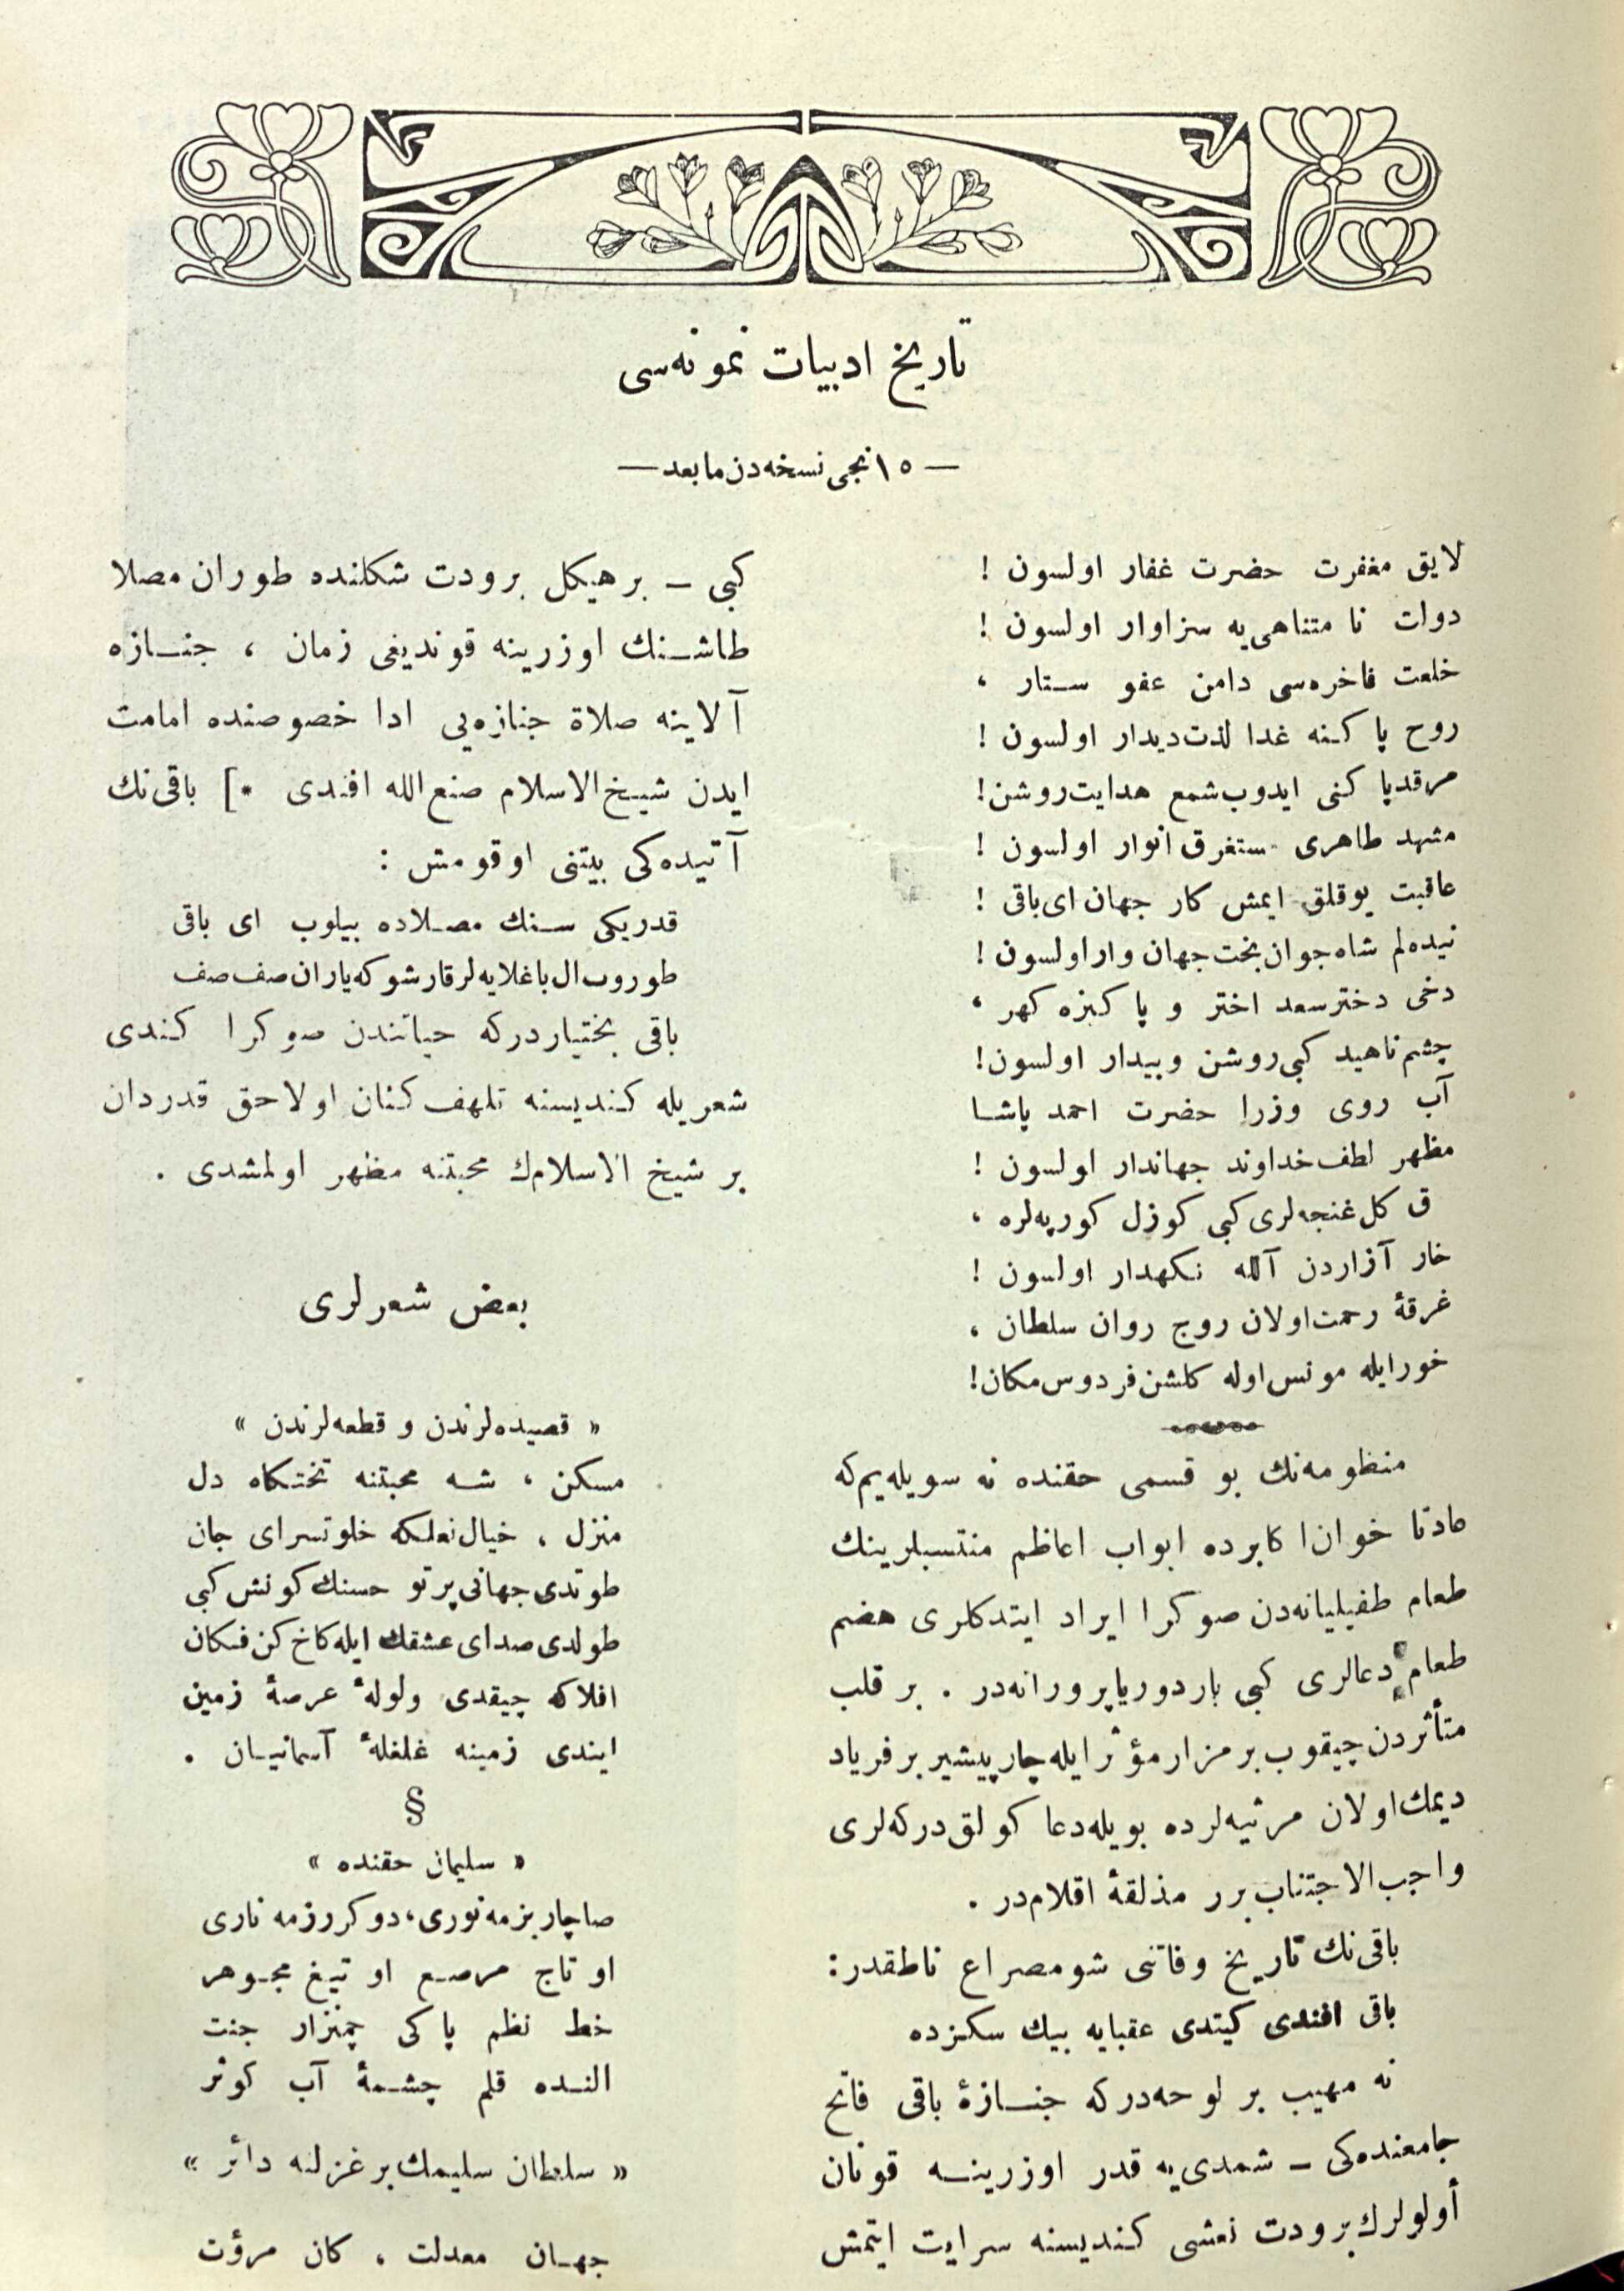 تاریخ ادبیات نمونه‌سی
— ١٥ نجی نسخه‌دن مابعد —
لایق مغفرت حضرت غفار اولسون !
دولت نا متناهی‌یه سزاوار اولسون !
خلعت فاخره‌سی دامن عفو ستار ،
روح پاکنه غدا لذت دیدار اولسون !
مرقد پاکنی ایدوب شمع هدایت روشن !
مشهد طاهری مستغرق انوار اولسون !
عاقبت یوقلق ایمش کار جهان ای باقی !
نیده‌لم شاه جوان بخت جهان وار اولسون !
دخی دختر سعد اختر و پاکیزه کهر ،
چشم ناهید کبی روشن و بیدار اولسون !
آب روی وزرا حضرت احمد پاشا
مظهر لطف خداوند جهاندار اولسون !
ق کل غنجه‌لری کبی کوزل کورپه‌لره ،
خار آزاردن آلله نکهدار اولسون !
غرقهٔ رحمت اولان روح روان سلطان ،
حور ایله مونس اوله کلشن فردوس مکان !
منظومه‌نك بو قسمی حقنده نه سویله‌یم‌که
عادتا خوان اکابرده ابواب اعاظم منتسبلرینك
طعام طفیلیانه‌دن صوکرا ایراد ایتدکلری هضم
طعام دعالری کبی بارد و ریاپرورانه‌در . بر قلب
متأثردن چیقوب بر مزار مؤثر ایله چارپیشیر بر فریاد
دیمك اولان مرثیه‌لرده بویله دعا کولق درکه‌لری
واجب‌الاجتناب برر مذلقهٔ اقلام‌در .
باقی‌نك تاریخ وفاتنی شو مصراع ناطقدر :
باقی افندی کیتدی عقبایه بیك سکزده
نه مهیب بر لوحه‌درکه جنازهٔ باقی فاتح
جامعنده‌کی — شمدی‌یه قدر اوزرینه قونان
أولولرك برودت نعشی کندیسنه سرایت ایتمش
کبی — بر هیکل برودت شکلنده طوران مصلا
طاشنك اوزرینه قوندیغی زمان ، جنازه
آلاینه صلاة جنازه‌یی ادا خصوصنده امامت
ایدن شیخ‌الاسلام صنع‌الله افندی *] باقی‌نك
آتیده‌کی بیتنی اوقومش :
قدریکی سنك مصلاده بیلوب ای باقی
طوروب ال باغلایه‌لر قارشوکه یاران صف صف
باقی بختیاردرکه حیاتندن صوکرا کندی
شعریله کندیسنه تلهف کنان اولاحق قدردان
بر شیخ الاسلامك محبتنه مظهر اولمشدی .
بعض شعرلری
« قصیده‌لرندن و قطعه‌لرندن »
مسکن ، شه محبتنه تختکاه دل
منزل ، خیال نعلکه خلوتسرای جان
طوتدی جهانی پرتو حسنك کونش کبی
طولدی صدای عشقك ایله کاخ کن فسکان
افلاکه چیقدی ولولهٔ عرصهٔ زمین
ایندی زمینه غلغلهٔ آسمانیان .
§
« سلیمان حقنده »
صاچار بزمه نوری ، دوکر رزمه ناری
او تاج مرصع او تیغ مجوهر
خط نظم پاکی چمنزار جنت
النده قلم چشمهٔ آب کوثر
« سلطان سلیمك بر غزلنه دائر »
جهان معدلت ، کان مرؤت